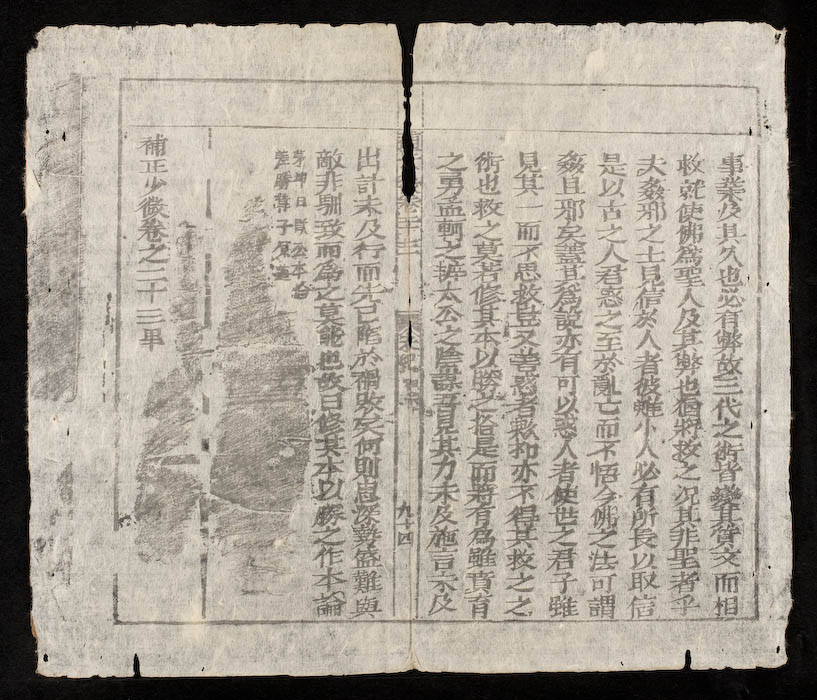 事業及其久也必有弊故三代之術皆變其質文而相
救就使佛爲聖人及其弊也猶將救之况其非聖者乎
夫姦邪之士見信於人者彼雖小人必有所長以取信
是以古之人君惑之至於亂亡而不悟今佛之法可謂
姦且邪矣蓋其爲說亦有可以惑人者使世之君子雖
見其而不思救豈又善惑者歟抑亦不得其救之之
術也救之莫若修其本以勝之捨是而將有爲雖賁育
之勇孟軻之辯太公之陰謀吾見其力未及施言未及
卷二十三
九十四
出計未及行而先已陷於禍敗矣何則患深勢盛難與
敵非馴致而爲之莫能也故曰修其本以勝之作本論
茅坤曰歐公本論
差勝韓子原道
補正少微卷之二十三畢